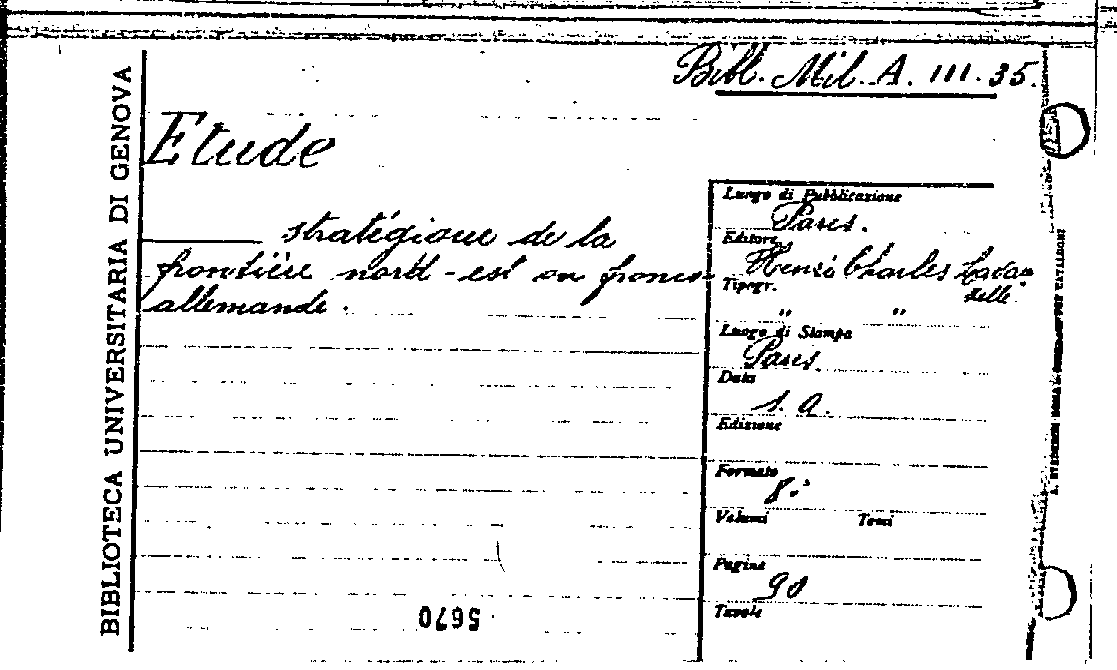 Bibl. Mil. A. III. 35.
BIBLIOTECA UNIVERSITARIA DI GENOVA
Etude
stratégique de la
frontière nord-est ou franco-
allemande.
Luogo di Pubblicazione
Paris.
Editore
Henri Charles Lavau
zelle
Tipogr.
" "
Luogo di Stampa
Paris.
Data
s. a.
Edizione
Formato
8.°
Volumi Tomi
Pagine
90
Tavole
5670